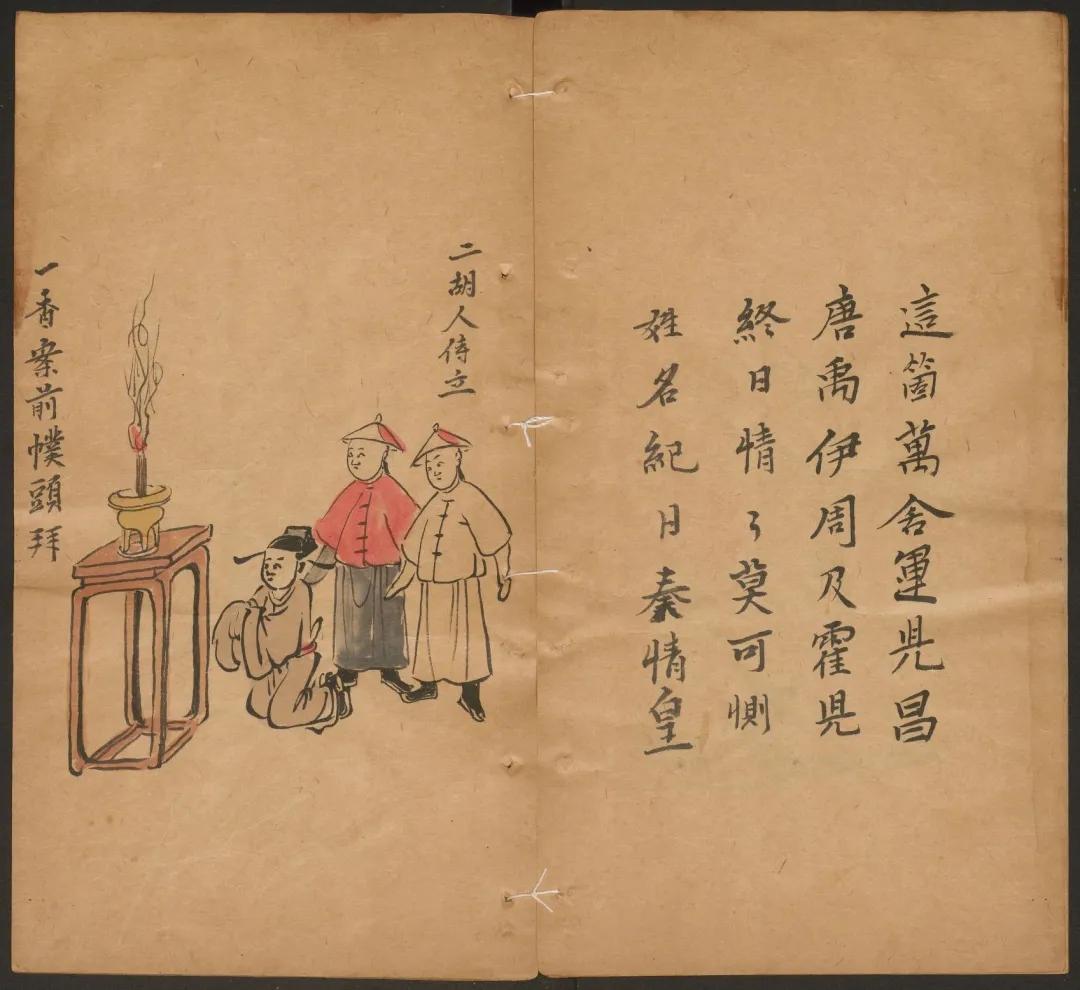 這箇萬舍運光昌
唐禹伊周及霍光
終日情々莫可惻
姓名紀日秦情皇
二胡人侍立
一香案前幞頭拜